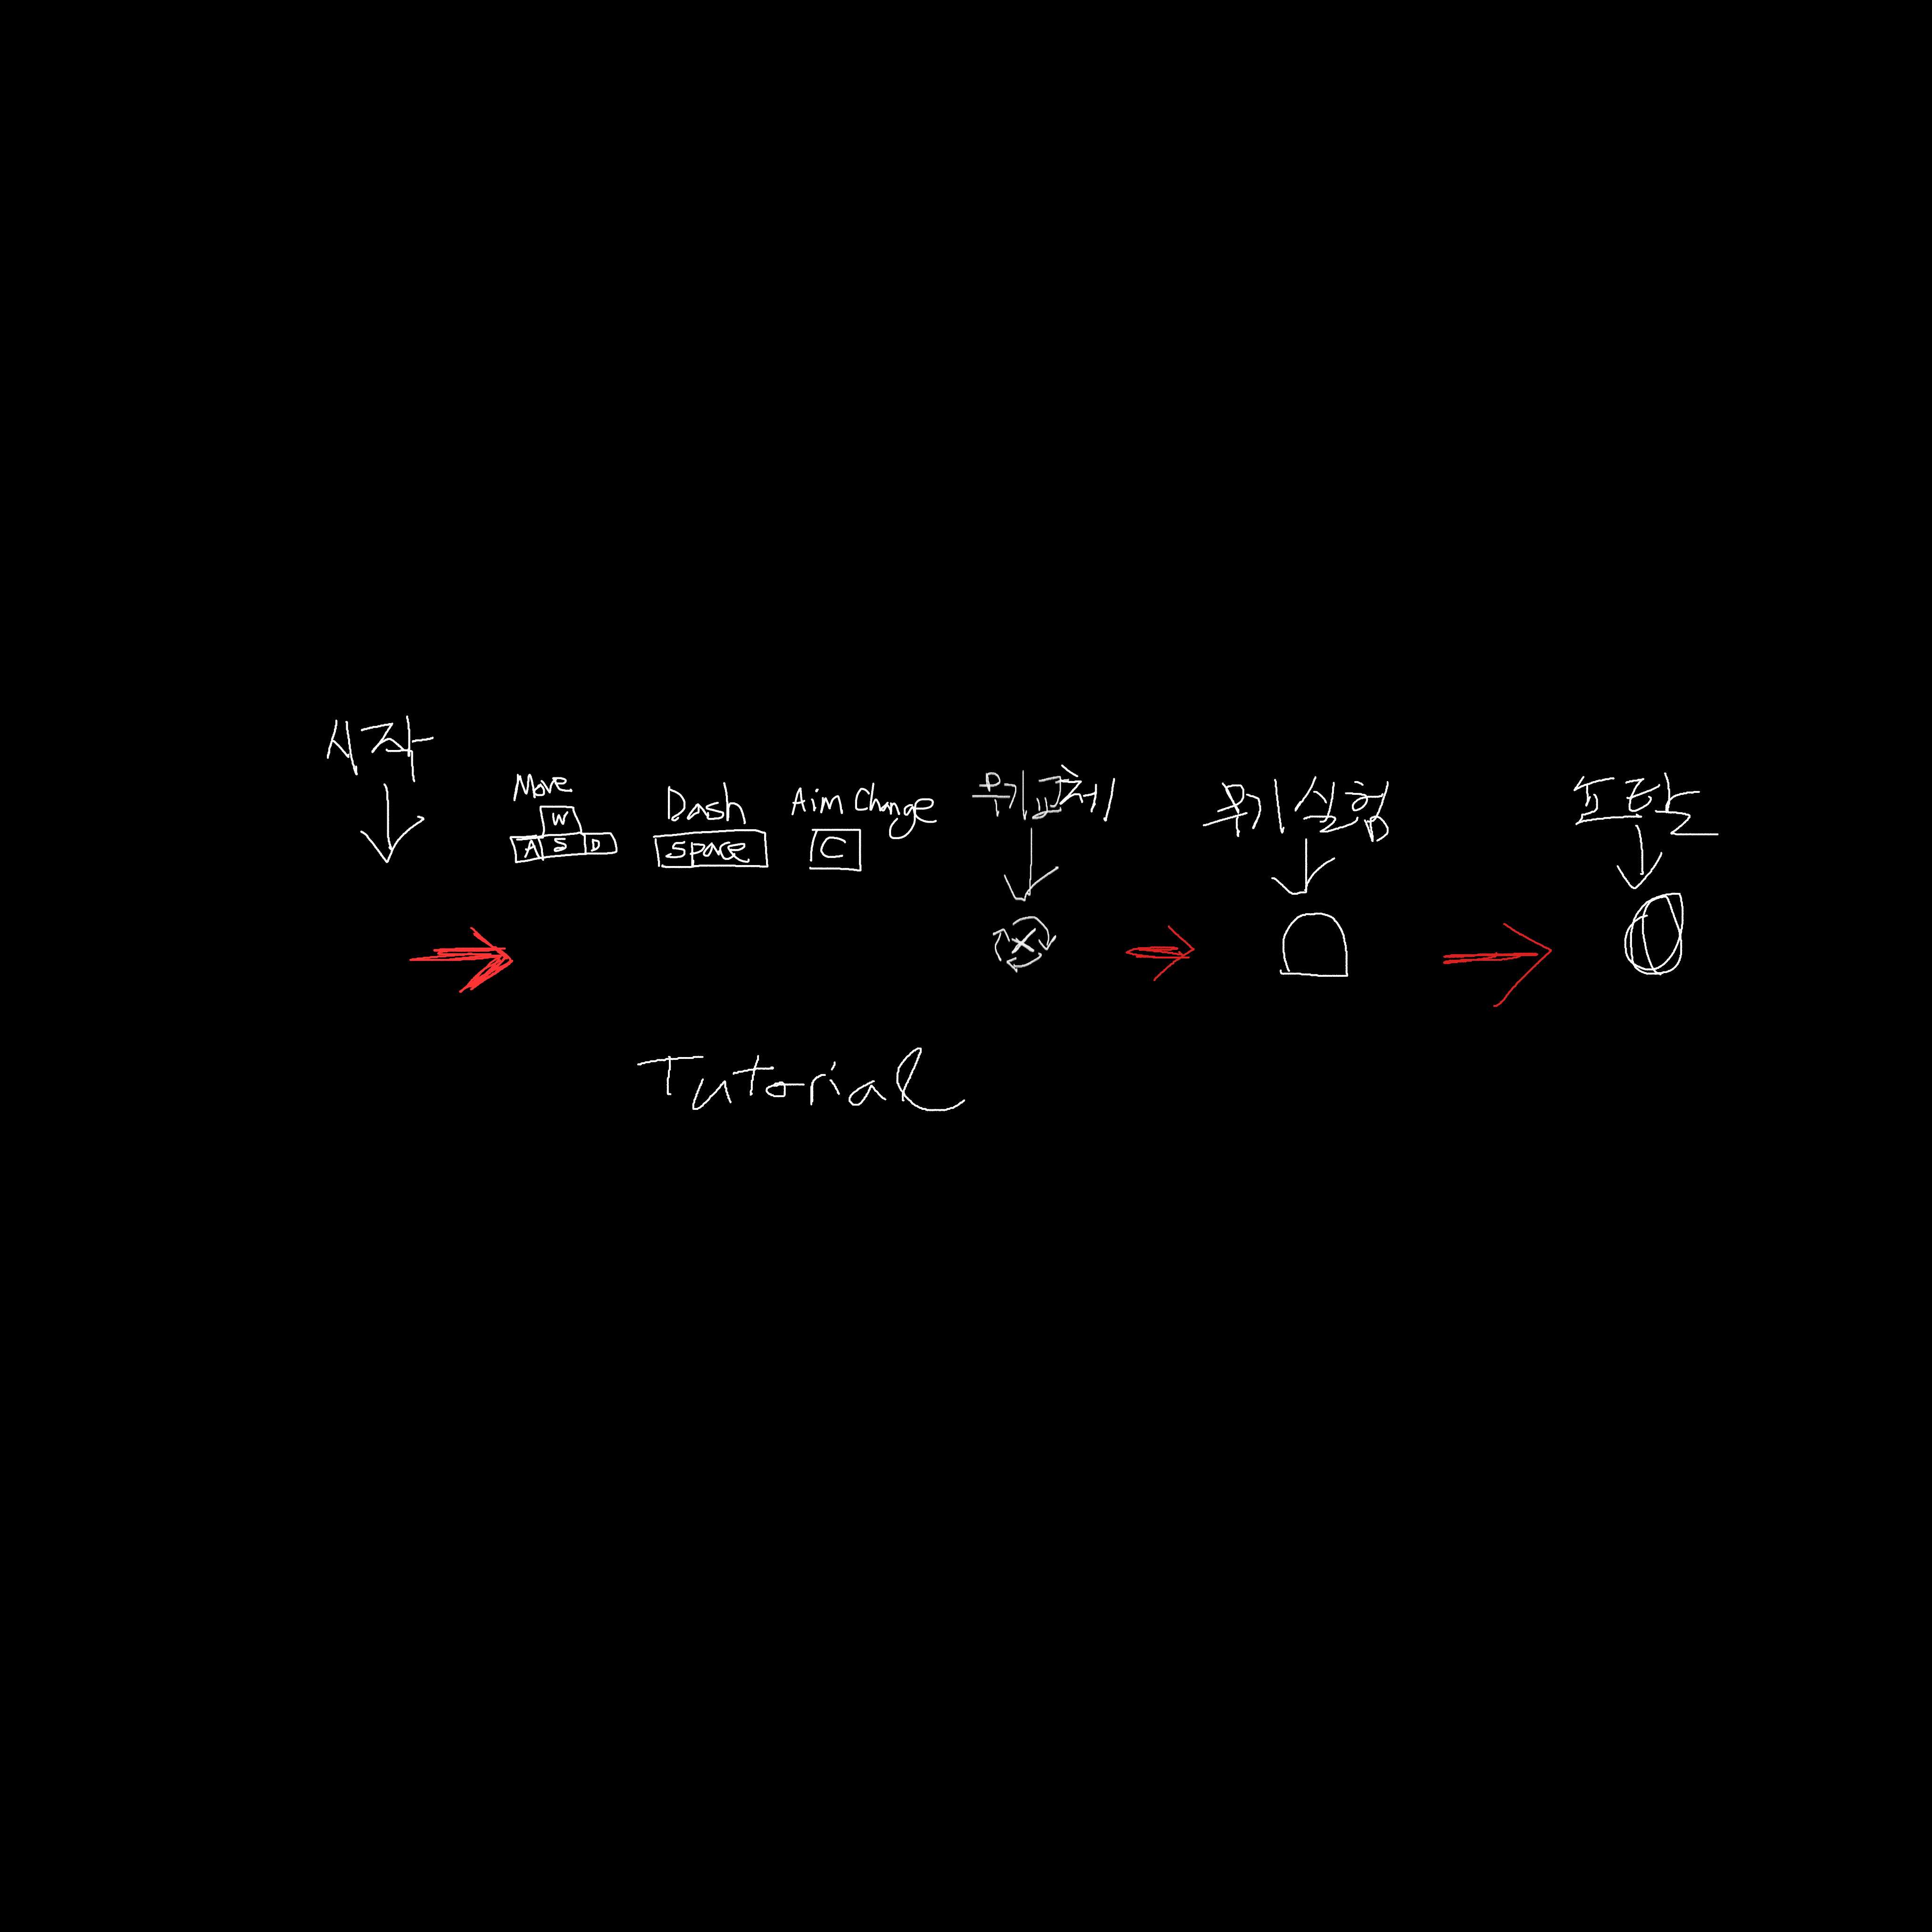 시작
Move
W
A S D
Dash
Space
Aim Change
C
무기교체
무기실험
포탈
Tutorial